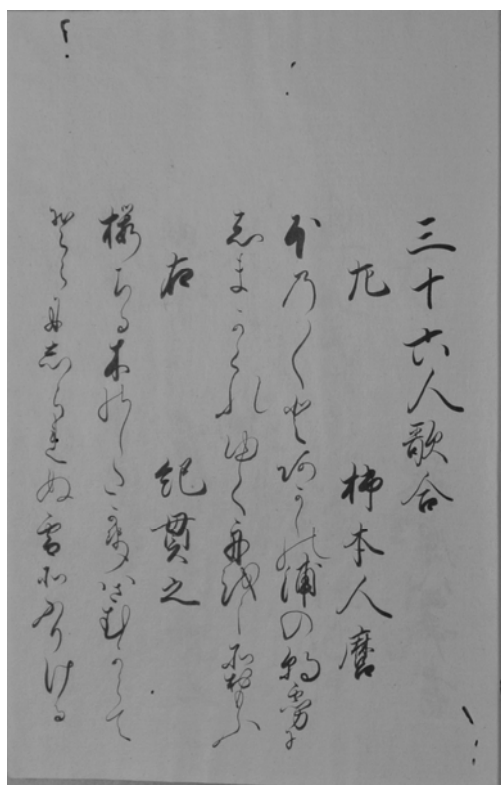 三十六人歌合
左 柿本人麿
ほの〱とあかしの浦の朝霧に
志まかくれゆく舟をしそおもふ
右 紀貫之
桜ちる木のした風はさむからて
そらに志られぬ雪そふりける